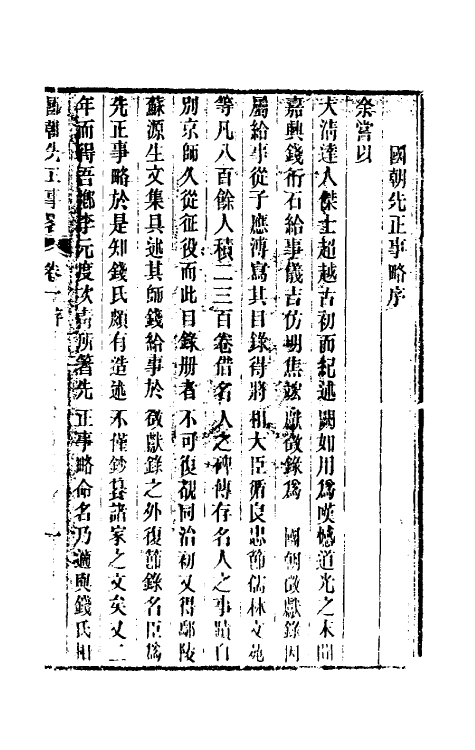 國朝先正事略序
余嘗以
大清達人傑士超越古初而紀述闕如用爲嘆憾道光之末聞
嘉興錢衎石給事儀吉仿明焦竑獻徵錄爲 國朝徵獻錄因
屬給事從子應溥寫其目錄得將相大臣循良忠節儒林文苑
等凡八百餘人積二三百卷借名人之碑傳存名人之事蹟自
別京師久從征役而此目錄册者不可復覩同治初又得鄢陵
蘇源生文集具述其師錢給事於徵獻錄之外復節錄名臣爲
先正事略於是知錢氏頗有造述不僅鈔纂諸家之文矣又二
年而得吾鄉李元度次青所著先正事略命名乃適與錢氏相
國朝先正事略 卷一 序 一